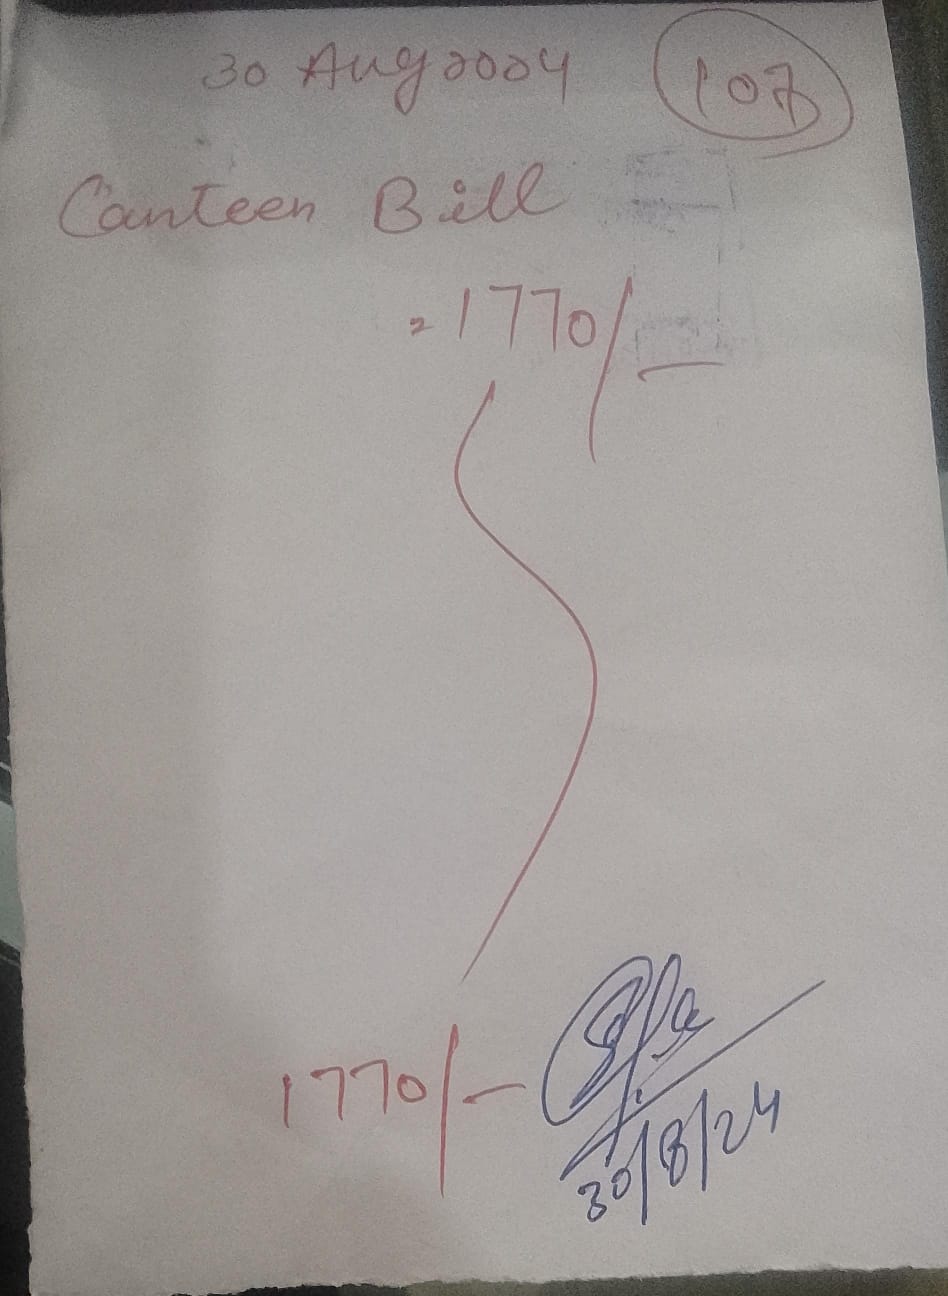 30 Aug 2024
107
Canteen Bill
=1770/-
1770/-
30/8/24